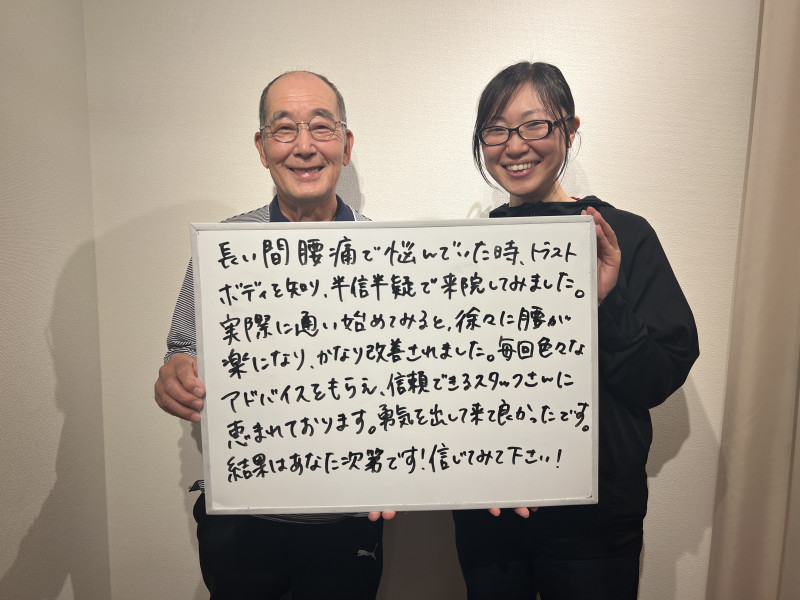 長い間腰痛で悩んでいた時、トラスト
ボディを知り、半信半疑で来院してみました。
実際に通い始めてみると、徐々に腰が
楽になり、かなり改善されました。毎回色々な
アドバイスをもらえ、信頼できるスタッフさんに
恵まれております。勇気を出して来て良かったです。
結果はあなた次第です!信じてみて下さい!